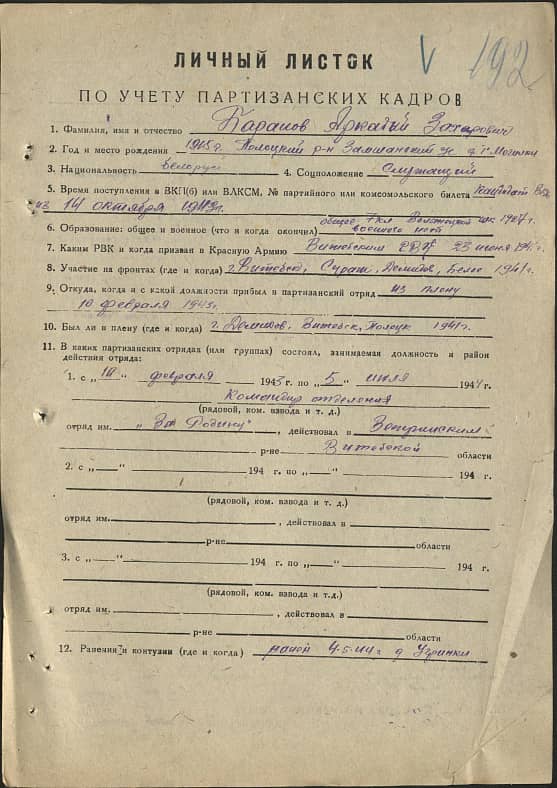 V 192
ЛИЧНЫЙ ЛИСТОК
ПО УЧЕТУ ПАРТИЗАНСКИХ КАДРОВ
1. Фамилия, имя и отчество Аркадий Захарович
2. Год и место рождения Полоцкий р-н
3. Национальность белорус 4. Соцположение Служащий
5. Время поступления в ВКП(б) или ВЛКСМ, № партийного или комсомольского билета кандидат
из 14 октября 1943г.
6. Образование: общее и военное (что и когда окончил) общее 7кл 1927г.
военного нет
7. Каким РВК и когда призван в Красную Армию Витебским 23 июня 1941г.
8. Участие на фронтах (где и когда) г. Витебск, Сураж, Демидов, 1941г.
9. Откуда, когда и с какой должности прибыл в партизанский отряд из плену
10 февраля 1943г.
10. Был ли в плену (где и когда) г. Демидов, Витебск, Полоцк 1941г.
11. В каких партизанских отрядах (или группах) состоял, занимаемая должность и район
действия отряда:
1. с „10" февраля 1943 г. по „5" июля 1944 г.
Командир отделения
(рядовой, ком. взвода и т. д.)
отряд им. „За Родину", действовал в Ветринским
р-не Витебской области
2. с „—" 194 г. по „—" 194 г.
(рядовой, ком. взвода и т. д.)
отряд им. , действовал в
р-не области
3. с „—" 194 г. по „—" 194 г.
(рядовой, ком. взвода и т.д.)
отряд им. , действовал в
р-не области
12. Ранения и контузии (где и когда) ранен 4-5-44г д.